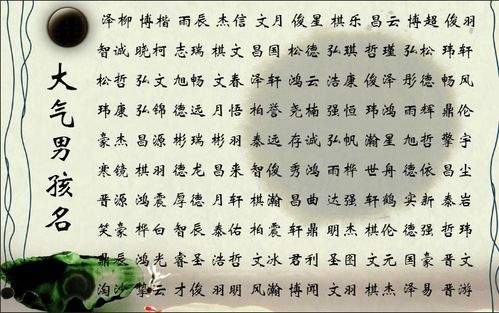 大气男孩名
泽柳 博楷 雨辰 杰信 文月 俊星 棋乐 昌云 博超 俊羽
智诚 晓柯 志瑞 棋文 昌国 松德 弘琪 哲瑾 弘松 玮轩
松哲 弘文 旭畅 文春 泽轩 鸿云 浩康 俊泽 彤德 畅风
玮康 弘锦 德远 月悟 柏誉 尧楠 强恒 玮鸿 雨辉 鼎伦
豪杰 昌源 彬瑞 彬羽 泰远 存诚 弘帆 瀚星 旭哲 擎宇
寒镜 棋羽 德龙 昌来 智俊 秀鸿 雨桦 世舟 德依 昌尘
晋源 鸿震 厚德 月轩 棋瀚 昌曲 达强 轩鹤 实新 泰岩
笑豪 桦白 智辰 泰佑 柏震 轩鼎 明杰 棋伦 德强 哲玮
鼎辰 鸿光 睿圣 浩哲 文冰 君利 圣图 文元 国豪 晋文
淘沙 擎云 才俊 羽明 风瀚 博闻 文羽 棋杰 泽易 晋游